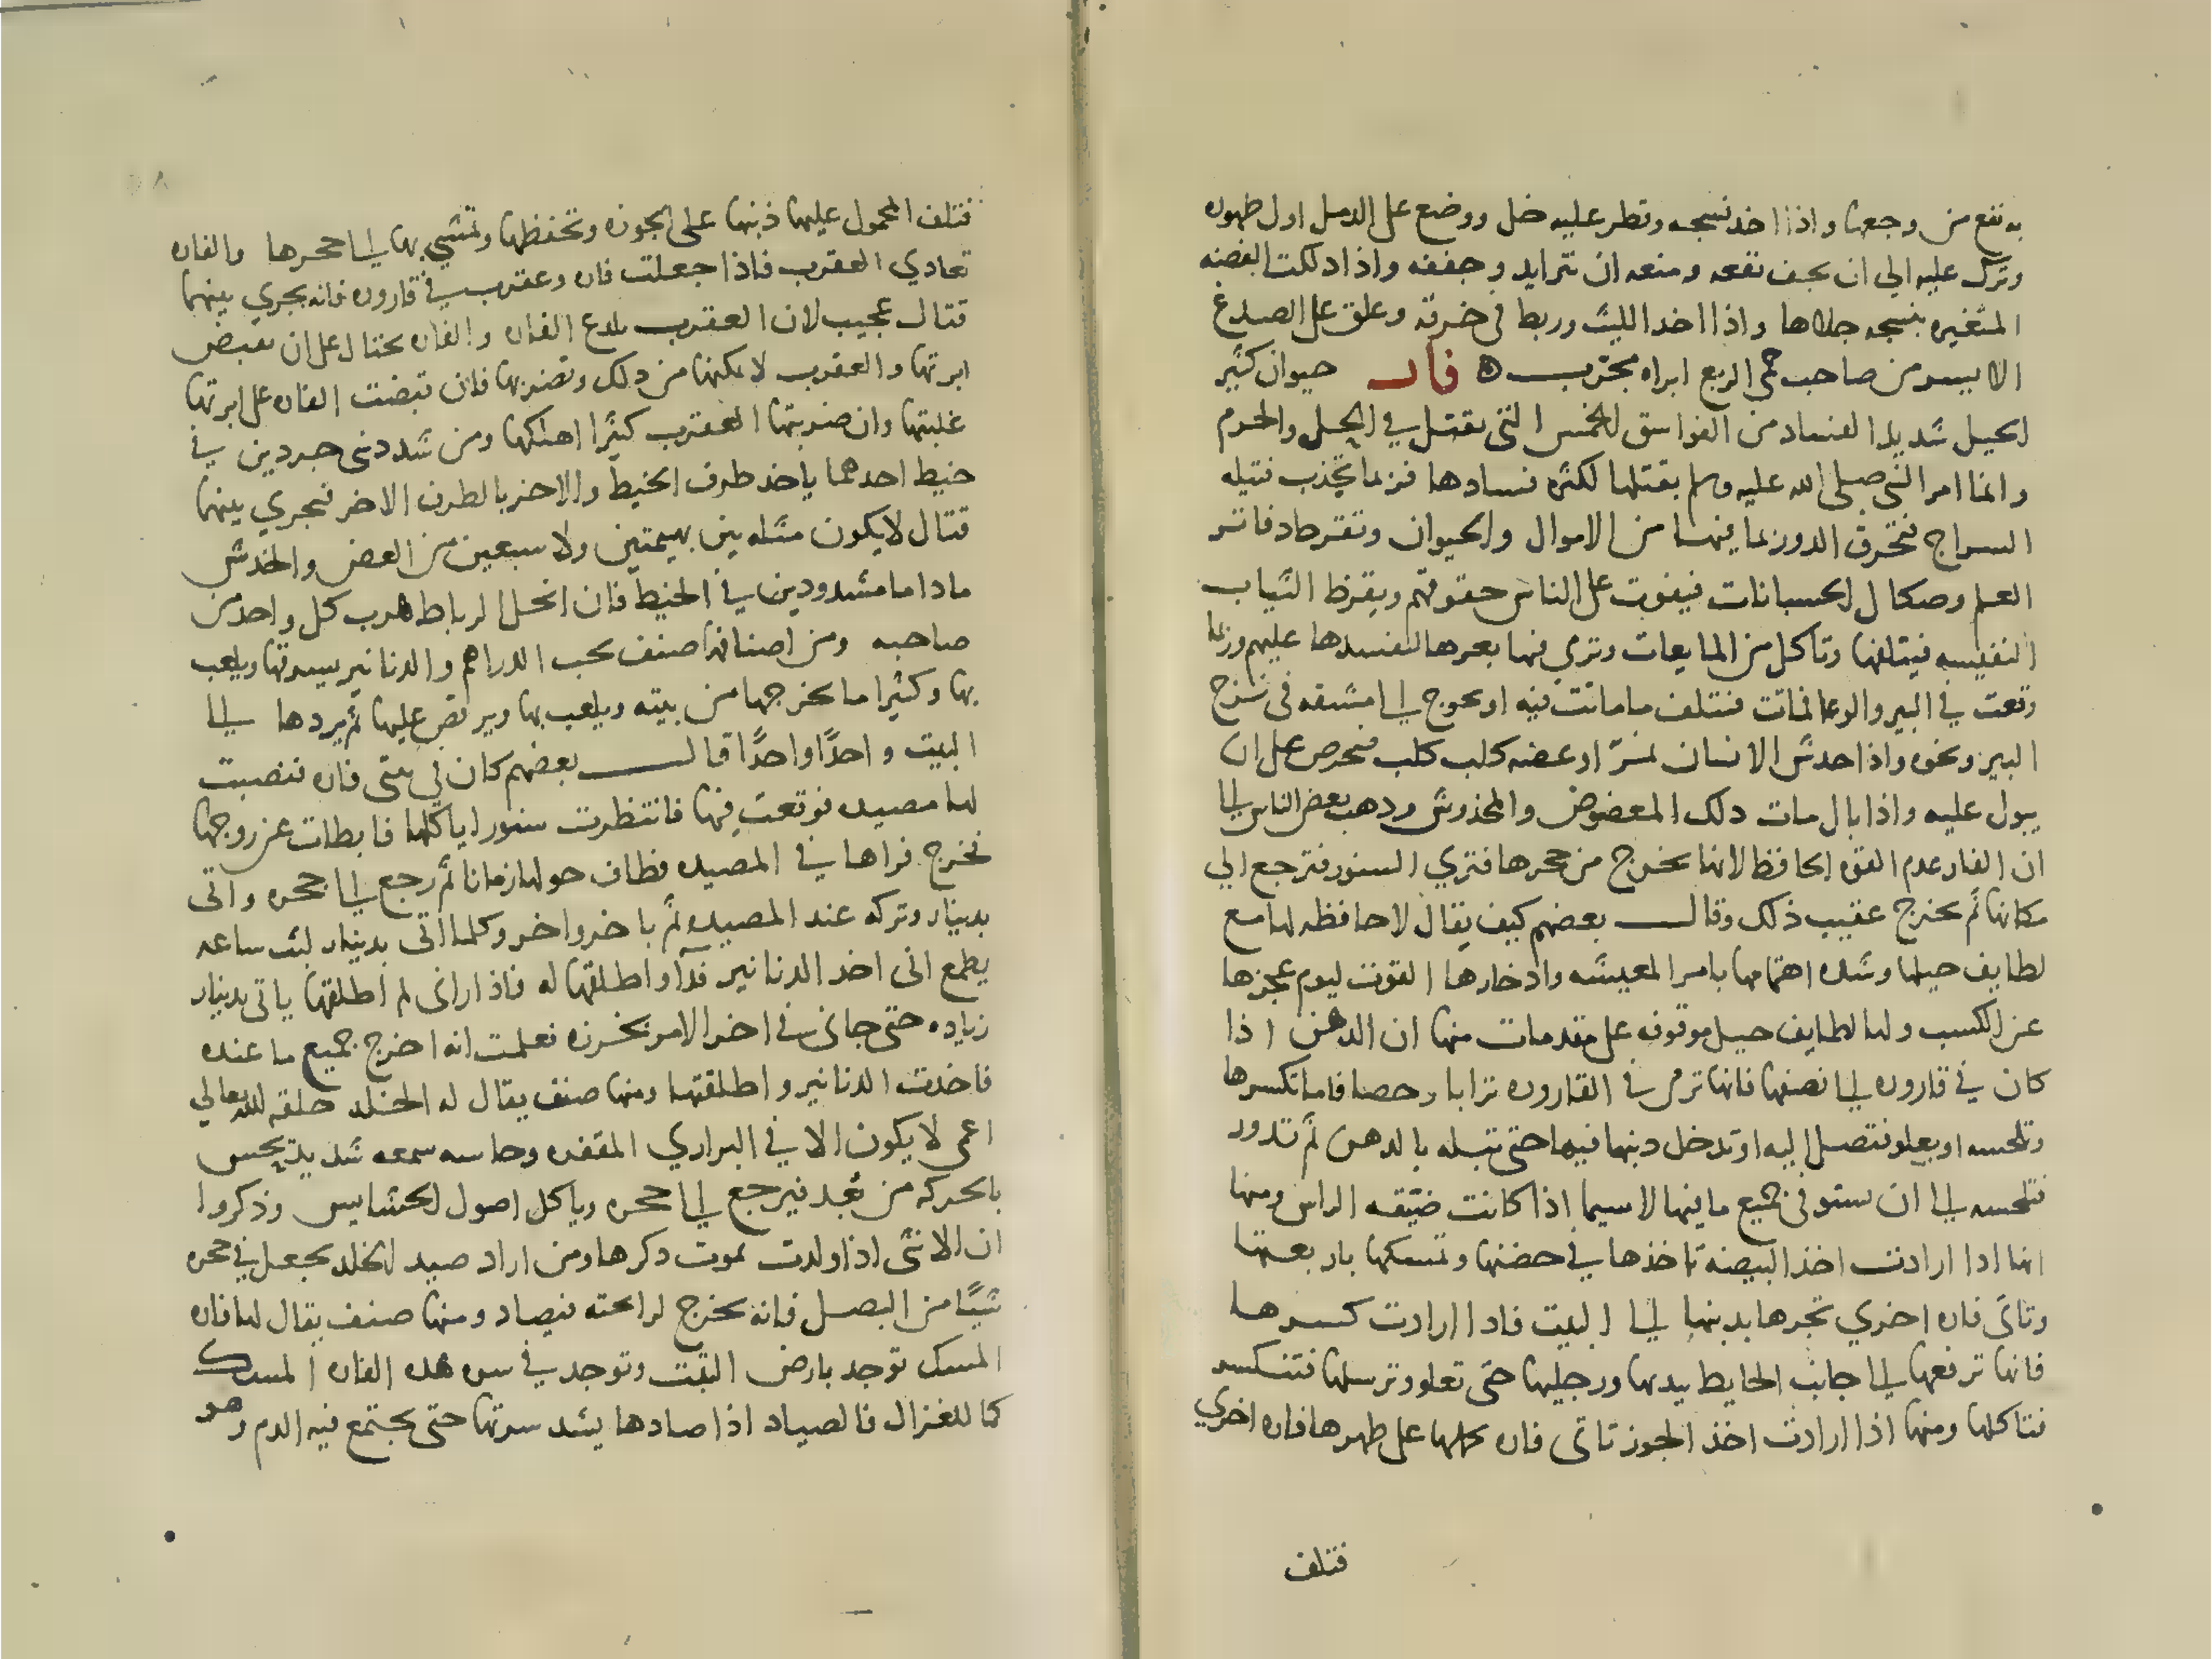 به نفع من وجعها واذا اخد نسجه وقطر عليه خل ووضع على الدمل اول ظهوره
وترك عليه الي ان يجف نفعه ومنعه ان يتزايد وجففه واذا دلكت الفضه
المتغيره بنسجه جلاها واذا اخد الليث وربط في خرقه وعلق على الصدغ
الايسر من صاحب حمى الربع ابراه مجرب ه فار حيوان كثير
الحيل شديد الفساد من الفواسق الخمس التي تقتل في الحل والحرم
وانما امر النبي صلى الله عليه وسلم بقتلها لكثره فسادها فربما تجذب فتيله
السراج فتحرق الدور بما فيها من الاموال والحيوان وتقرض دفاتر
العلم وصكاك الحسبانات فيفوت على الناس حقوقهم ويقرض الثياب
النفيسه فيتلفها وتاكل من المايعات وترمي فيها بعرها لتفسدها عليهم وربما
وقعت في البير والوعا فماتت فتتلف ما ماتت فيه او يحوج الى مشقه في نزح
البير ونحوه واذا خدش الانسان نمرا او عضه كلب كلب فيحرص على ان
يبول عليه واذا بال مات دلك المعضوض والمخدوش ودهب بعض الناس الى
ان الفار عدم القوه الحافظه لانها تخرج من جحرها فتري السنور فترجع الي
مكانها ثم تخرج عقيب ذلك وقال بعضهم كيف يقال لا حافظه لها مع
لطايف حيلها وشده اهتمامها بامر المعيشه وادخارها القوت ليوم عجزها
عن الكسب ولها لطايف حيل موقوفه على مقدمات منها ان الدهن اذا
كان في قاروره الى نصفها فانها ترمي في القاروره ترابا وحصا فاما تكسرها
وتلحسه او يعلو فتصل اليه او تدخل دنبها فيها حتى تبله بالدهن ثم تدور
فتلحسه الى ان تستوفي جميع ما فيها لاسيما اذا كانت ضيقه الراس ومنها
انها ادا ارادت اخذ البيضه تاخذها في حضنها وتمسكها باربعتها
وتاتي فاره اخري تجرها بدنبها الى البيت فادا ارادت كسرها
فانها ترفعها الى جانب الحايط بيدها ورجليها حتى تعلو وترسلها فتنكسر
فتاكلها ومنها اذا ارادت اخذ الجوز تاتي فاره تحملها على ظهرها فاره اخري
فتلف
فتلف المحمول عليها ذنبها على الجوزه وتحفظها وتمشي بها الى جحرها والفاره
تعادي العقرب فاذا جعلت فاره وعقرب في قاروره فانه يجري بينهما
قتال عجيب لان العقرب تلدغ الفاره والفاره تحتال على ان تقبض
ابرتها والعقرب لا تمكنها من دلك وتضربها فان قبضت الفاره على ابرتها
غلبتها وان ضربتها العقرب كثيرا اهلكها ومن شد دنبي جردين في
خيط احدهما ياخد طرف الخيط والاخر بالطرف الاخر فيجري بينهما
قتال لا يكون مثله بين بهيمتين ولا سبعين من العض والخدش
ماداما مشدودين في الخيط فان انحل الرباط هرب كل واحد من
صاحبه ومن اصنافها صنف يحب الدراهم والدنانير يسرقها ويلعب
بها وكثيرا ما يخرجها من بيته ويلعب بها ويرقص عليها ثم يردها الى
البيت واحدًا واحدًا قال بعضهم كان في بيتي فاره فنصبت
لها مصيده فوقعت فيها فانتظرت سنورا ياكلها فابطات عن زوجها
فخرج فراها في المصيده فطاف حولها زمانا ثم رجع الى جحره واتى
بدينار وتركه عند المصيده ثم باخر واخر وكلما اتى بدينار لبث ساعه
يطمع انى اخد الدنانير فدآ واطلقها له فاذا رانى لم اطلقها ياتى بدينار
زياده حتى جانى في اخر الامر بخرزه فعلمت انه اخرج جميع ما عنده
فاخدت الدنانير واطلقتها ومنها صنف يقال له الخلد خلقه الله تعالي
اعمى لا يكون الا في البراري المقفره وحاسه سمعه شديد يحس
بالحركه من بعد فيرجع الى جحره وياكل اصول الحشايش وذكروا
ان الانثى اذا ولدت يموت دكرها ومن اراد صيد الخلد يجعل في جحره
شيًا من البصل فانه يخرج لرائحته فيصاد ومنها صنف يقال لها فاره
المسك توجد بارض التبت وتوجد في سره هده الفاره المسك
كما للغزال فالصياد اذا صادها يشد سرتها حتى يجتمع فيه الدم وهو